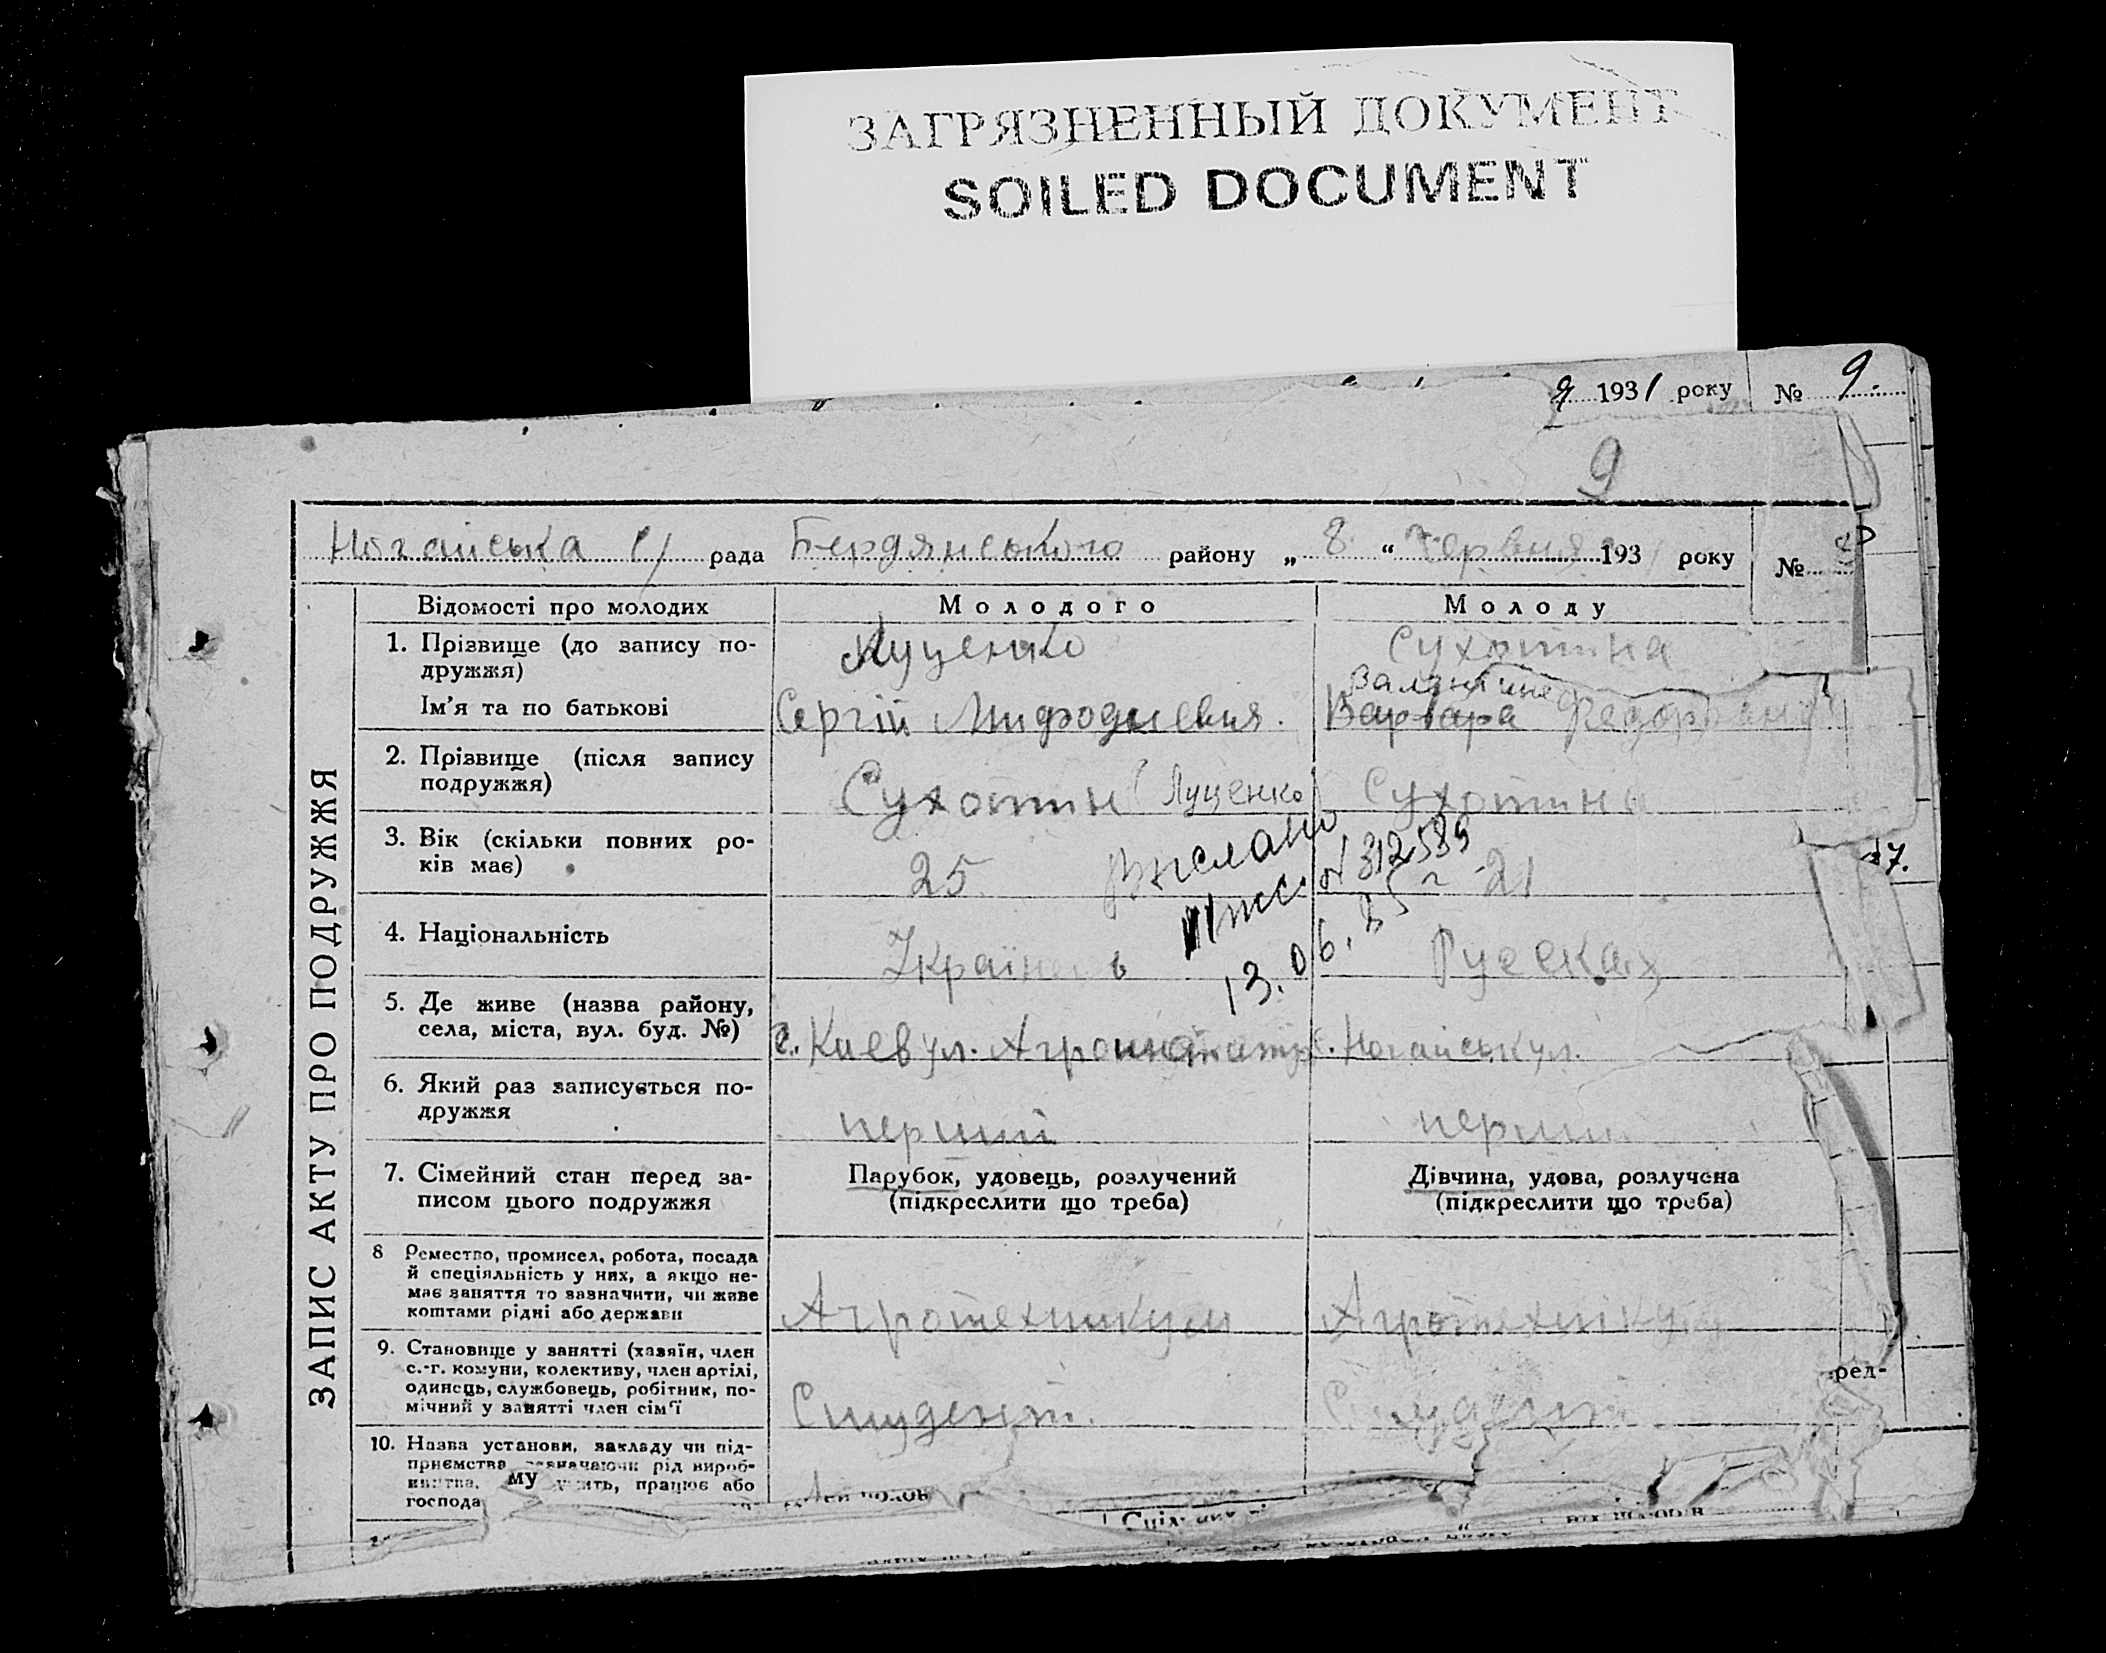 ЗАГРЯЗНЕННЫЙ ДОКУМЕНТ
SOILED DOCUMENT
9 1931 року № 9.
9
Ногайська с/ рада Бердянського району „ 8 “ червня 193 року №
ЗАПИС АКТУ ПРО ПОДРУЖЖЯ
Відомості про молодих Молодого Молоду
1. Прізвище (до запису по-
дружжя)
Луценко Сухотина
Валентина
Ім'я та по батькові Сергій Мифодиевия. Варвара
2. Прізвище (після запису
подружжя)
Сухотин (Луценко) Сухотина
3. Вік (скільки повних ро-
ків має)
25 21
Выслано
N 312589
13.06.85 г
17.
4. Національність Українець Русская
5. Де живе (назва району,
села, міста, вул. буд. №)
г. Киев ул. с. Ногайськ ул.
6. Який раз записується по-
дружжя
перший перший
7. Сімейний стан перед за-
писом цього подружжя
Парубок, удовець, розлучений
(підкреслити що треба)
Дівчина, удова, розлучена
(підкреслити що треба)
8 Ремество, промисел, робота, посада
й спеціяльність у них, а якщо не-
має заняття то зазначити, чи живе
коштами рідні або держави
Агротехникум Агротехнікум
9. Становище у занятті (хазяїн, член
с.-г. комуни, колективу, член артілі,
одинець, службовець, робітник, по-
мічний у занятті член сім'ї
Студент. Студент
ред-
10. Назва установи, закладу чи під-
приємства зазначаючи рід вироб-
му працює або
господа